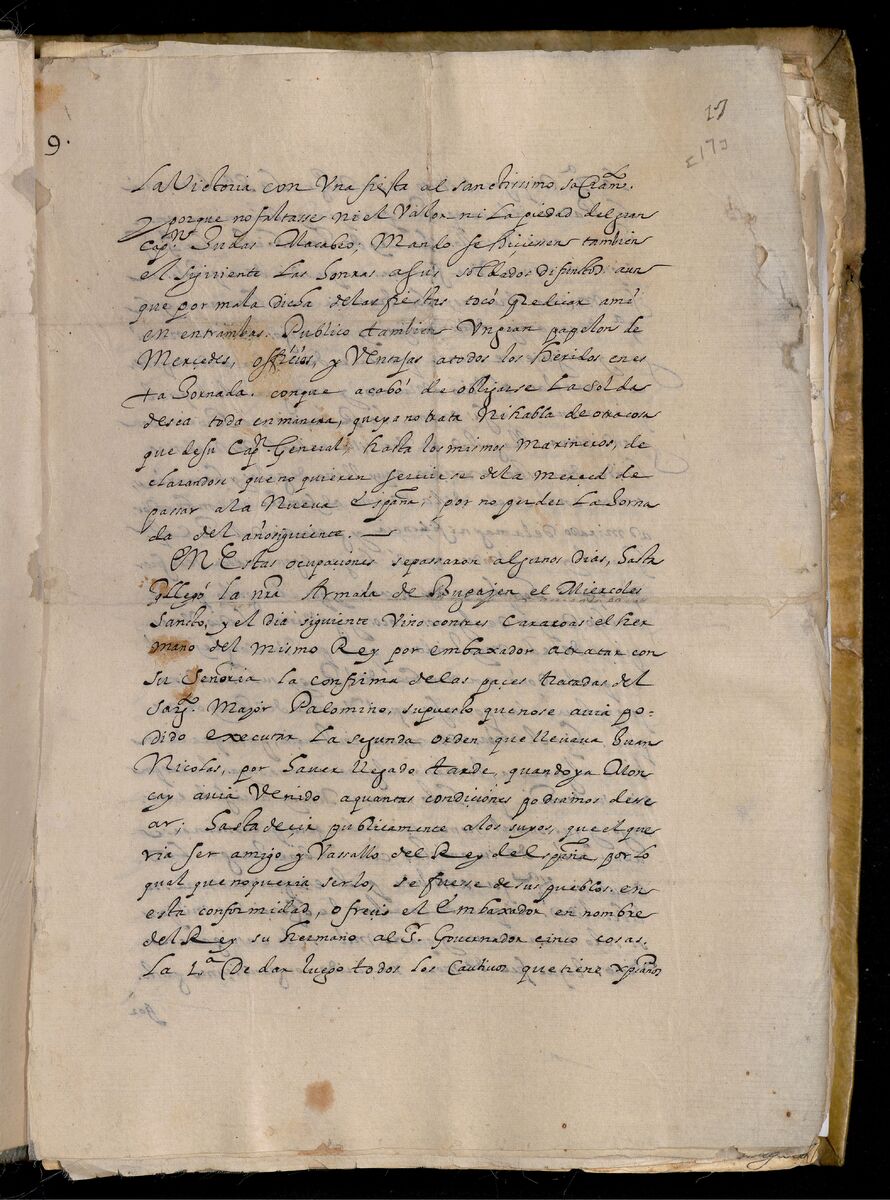 17
[17]
9.
La Victoria con Vna fiesta al sanctissimo sacram.to
y porque no faltasse ni el Valor ni La piedad del gran
Cap.n Judas Macabeo; Mando se hiçiessen tambien
el siguiente Las honras a sus soldados difuntos aun
que por mala dicha de las fiestas tocó predicar ami
en entrambas. Publico tambien Vn gran papelon de
Mercedes, officios, y Ventajas a todos los heridos en es
ta Jornada. con que acabó de obligarse La solda
desca toda en manera, que ya no trata Ni habla de otra cosa
que de su Cap.n General, hasta los mismos Marineros, de
clarandose que no quieren servirse de la merced de
passar a la Nueva España, por no perder La Jorna
da del año siguiente.
En Estas ocupaciones se passaron algunos dias, hasta
q llegó la nra Armada de Buyajen el Miercoles
Sancto, y el dia siguiente Vino con tres Caracoas el her
mano del mismo Rey por embaxador a tratar con
su Señoria la confirma de las paçes tratadas del
Sarg.to Mayor Palomino, supuesto que no se avia po-
dido executar La segunda orden que llevava Juan
Nicolas, por haver llegado tarde, quando ya Mon
cay avia Venido a quantas condiciones podiamos dese
ar; hasta deçir publicamente a los suyos, que el que
ria ser amigo y Vassallo del Rey de España, por lo
qual que no queria serlo, se fuesse de sus pueblos. en
esta conformidad, ofrecio el Embaxador en nombre
del Rey su hermano al Sr. Governador cinco cosas.
La 1.a De dar luego todos los Cautivos que tiene xpianos